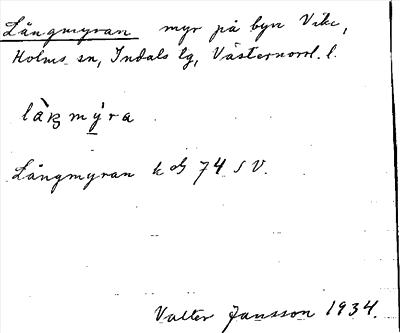 Långmyran myr på byn Vike,
Holms sn, Indals tg, Västernorrl. l.
låꞑmy̱ra
Långmyran k ob 74 SV.
Valter Jansson 1934.